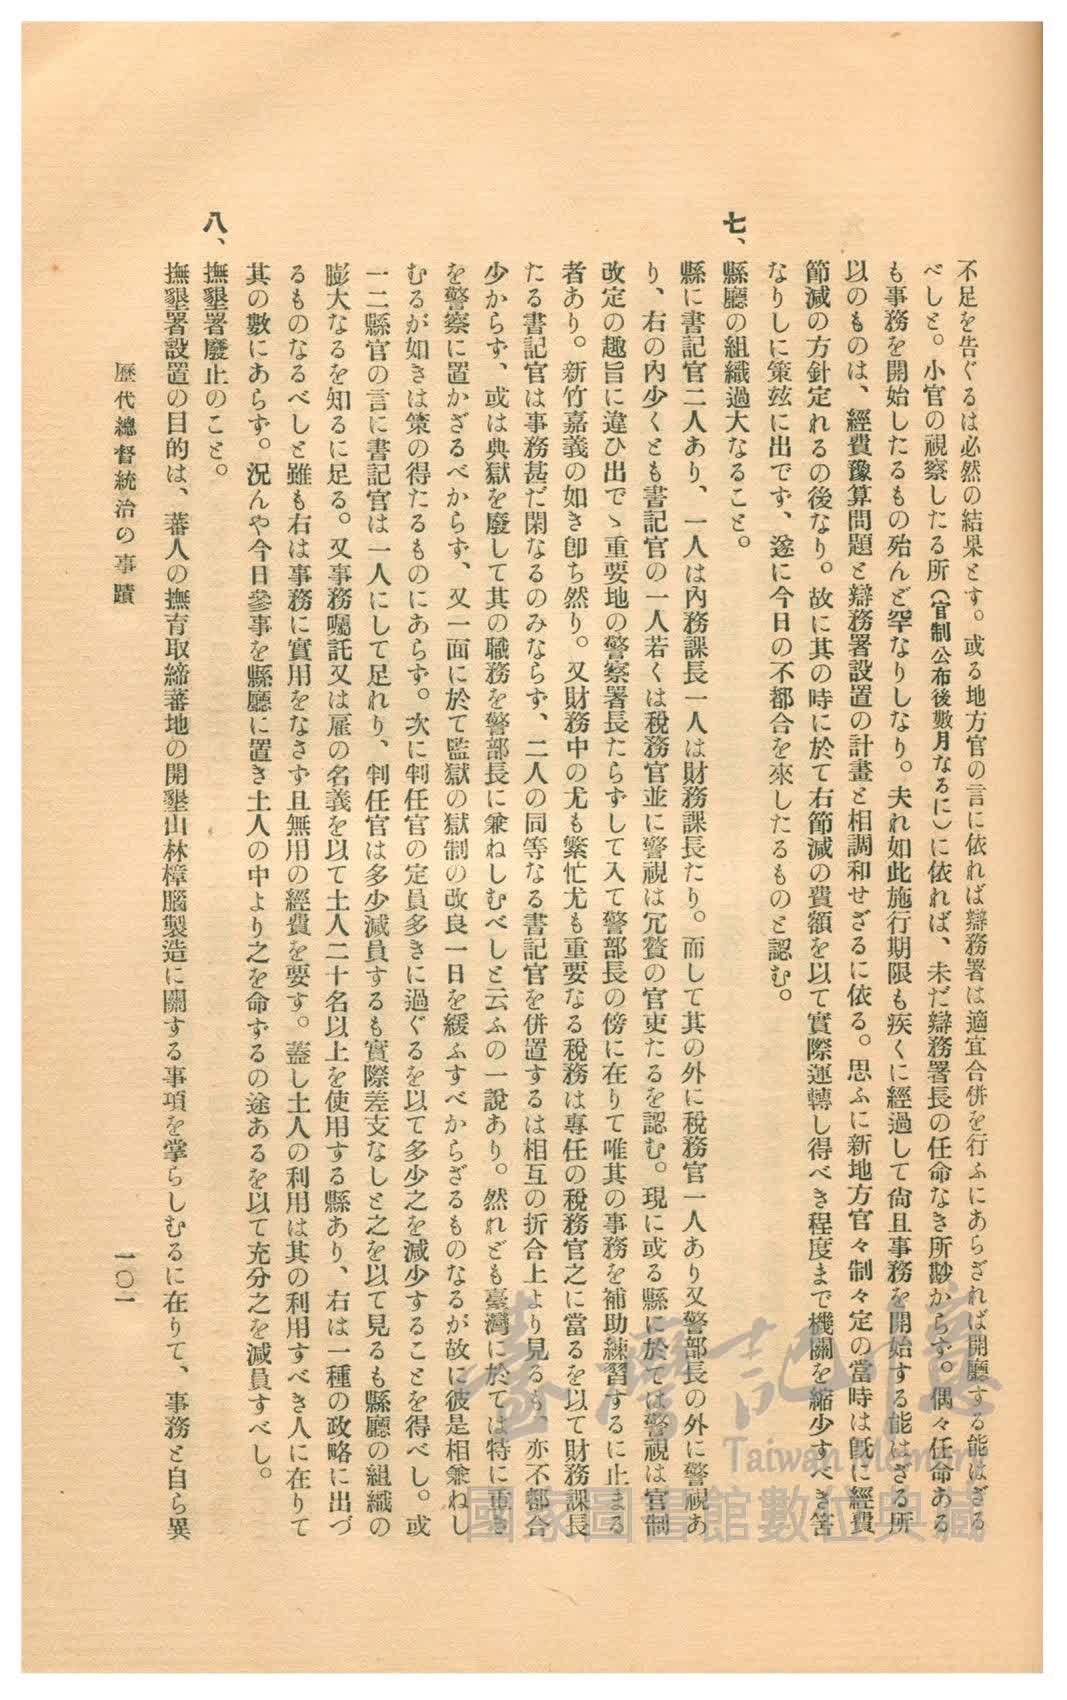 不足を告ぐるは必然の結果とす。或る地方官の言に依れば辯務署は適宜合併を行ふにあらざれば開廳する能はざる
べしと。小官の視察したる所（官制公布後數月なるに）に依れば、未だ辯務署長の任命なき所尠からず。偶々任命ある
も事務を開始したるもの殆んど罕なりしなり。夫れ如此施行期限も疾くに經過して尙且事務を開始する能はざる所
以のものは、經費豫算問題と辯務署設置の計畫と相調和せざるに依る。思ふに新地方官々制々定の當時は既に經費
節減の方針定れるの後なり。故に其の時に於て右節減の費額を以て實際運轉し得べき程度まで機關を縮少すべき筈
なりしに策玆に出でず、遂に今日の不都合を來したるものと認む。
七、
縣廳の組織過大なること。
縣に書記官二人あり、一人は內務課長一人は財務課長たり。而して其の外に稅務官一人あり又警部長の外に警視あ
り、右の內少くとも書記官の一人若くは稅務官並に警視は冗贅の官吏たるを認む。現に或る縣に於ては警視は官制
改定の趣旨に違ひ出でゝ重要地の警察署長たらずして入て警部長の傍に在りて唯其の事務を補助練習するに止まる
者あり。新竹嘉義の如き卽ち然り。又財務中の尤も繁忙尤も重要なる稅務は專任の稅務官之に當るを以て財務課長
たる書記官は事務甚だ閑なるのみならず、二人の同等なる書記官を併置するは相互の折合上より見るも、亦不都合
少からず、或は典獄を廢して其の職務を警部長に兼ねしむべしと云ふの一說あり。然れども臺灣に於ては特に重き
を警察に置かざるべからず、又一面に於て監獄の獄制の改良一日を緩ふすべからざるものなるが故に彼是相兼ねし
むるが如きは策の得たるものにあらず。次に判任官の定員多きに過ぐるを以て多少之を減少することを得べし。或
一二縣官の言に書記官は一人にして足れり、判任官は多少減員するも實際差支なしと之を以て見るも縣廳の組織の
膨大なるを知るに足る。又事務囑託又は雇の名義を以て土人二十名以上を使用する縣あり、右は一種の政略に出づ
るものなるべしと雖も右は事務に實用をなさず且無用の經費を要す。蓋し土人の利用は其の利用すべき人に在りて
其の數にあらず。況んや今日參事を縣廳に置き土人の中より之を命ずるの途あるを以て充分之を減員すべし。
八、
撫墾署廢止のこと。
撫墾署設置の目的は、蕃人の撫育取締蕃地の開墾山林樟腦製造に關する事項を掌らしむるに在りて、事務と自ら異
歷代總督統治の事蹟
一〇一
臺灣記憶
Taiwan Memory
國家圖書館數位典藏